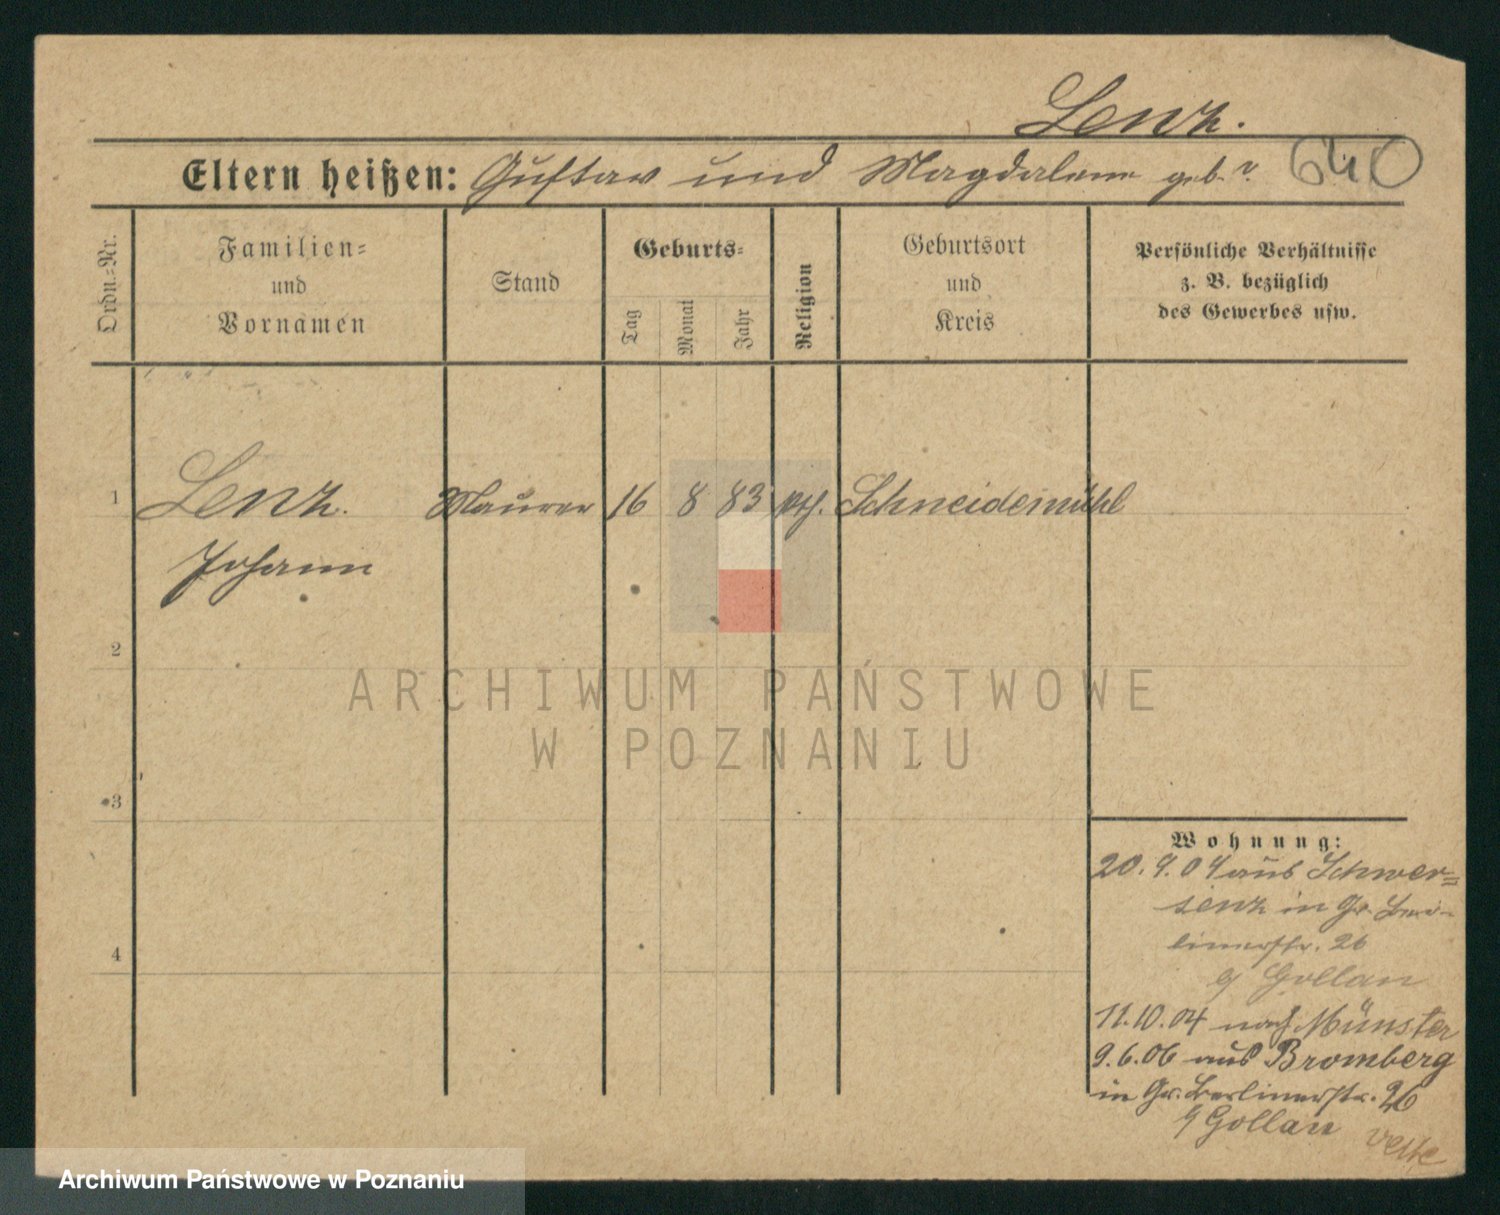 Lenz.
640
Eltern heißen: Gustav und Magdalena geb. ?
Ordn.-Nr.
Familien-
und
Vornamen
Stand
Geburts-
Tag
Monat
Jahr
Religion
Geburtsort
und
Kreis
Persönliche Verhältnisse
z. B. bezüglich
des Gewerbes usw.
1 Lenz. Maurer 16 8 83 kth. Schneidemühl
Johann
2
3
4
ARCHIWUM PAŃSTWOWE
W POZNANIU
Wohnung:
20.9.04 aus Schwer-
senz in Gr. Ber-
linerstr. 26
Gollan
11.10.04 nach Münster
9.6.06 aus Bromberg
in Gr. Berlinerstr. 26
Gollan
Archiwum Państwowe w Poznaniu